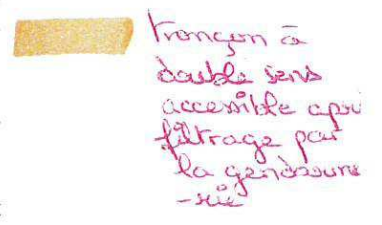 tronçon à
double sens
accessible apr
filtrage par
la gendarme
-rie